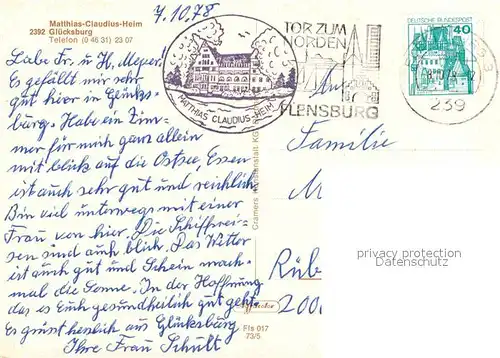 Matthias-Claudius-Heim
2392 Glücksburg
Telefon (0 46 31) 23 07
7.10.78
Liebe Fr. u. H. Meyer!
Es gefällt mir sehr
gut hier in Glücks-
burg. Habe ein Zim-
mer für mich ganz allein
mit blick auf die Ostsee, Essen
ist auch sehr gut und reichlich
Bin viel unterwegs mit einer
Frau von hier. Die Schiffrei-
sen sind auch blich. Das Wetter
ist auch gut und Schein mach-
mal die Sonne. In der Hoffnung
das es Euch gesundheitlich gut geht.
Es grüsst herzlich aus Glücksburg
Ihre Frau Schult
MATTHIAS CLAUDIUS-HEIM
TOR ZUM
NORDEN
FLENSBURG
DEUTSCHE BUNDESPOST
40
239
An
Familie
M
Rüb
2000
Cramers Kunstanstalt KG
Fls 017
73/5
privacy protection
Datenschutz